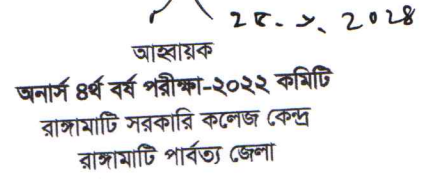 ২৫.১.২০২৪
আহ্বায়ক
অনার্স ৪র্থ বর্ষ পরীক্ষা-২০২২ কমিটি
রাঙ্গামাটি সরকারি কলেজ কেন্দ্র
রাঙ্গামাটি পার্বত্য জেলা